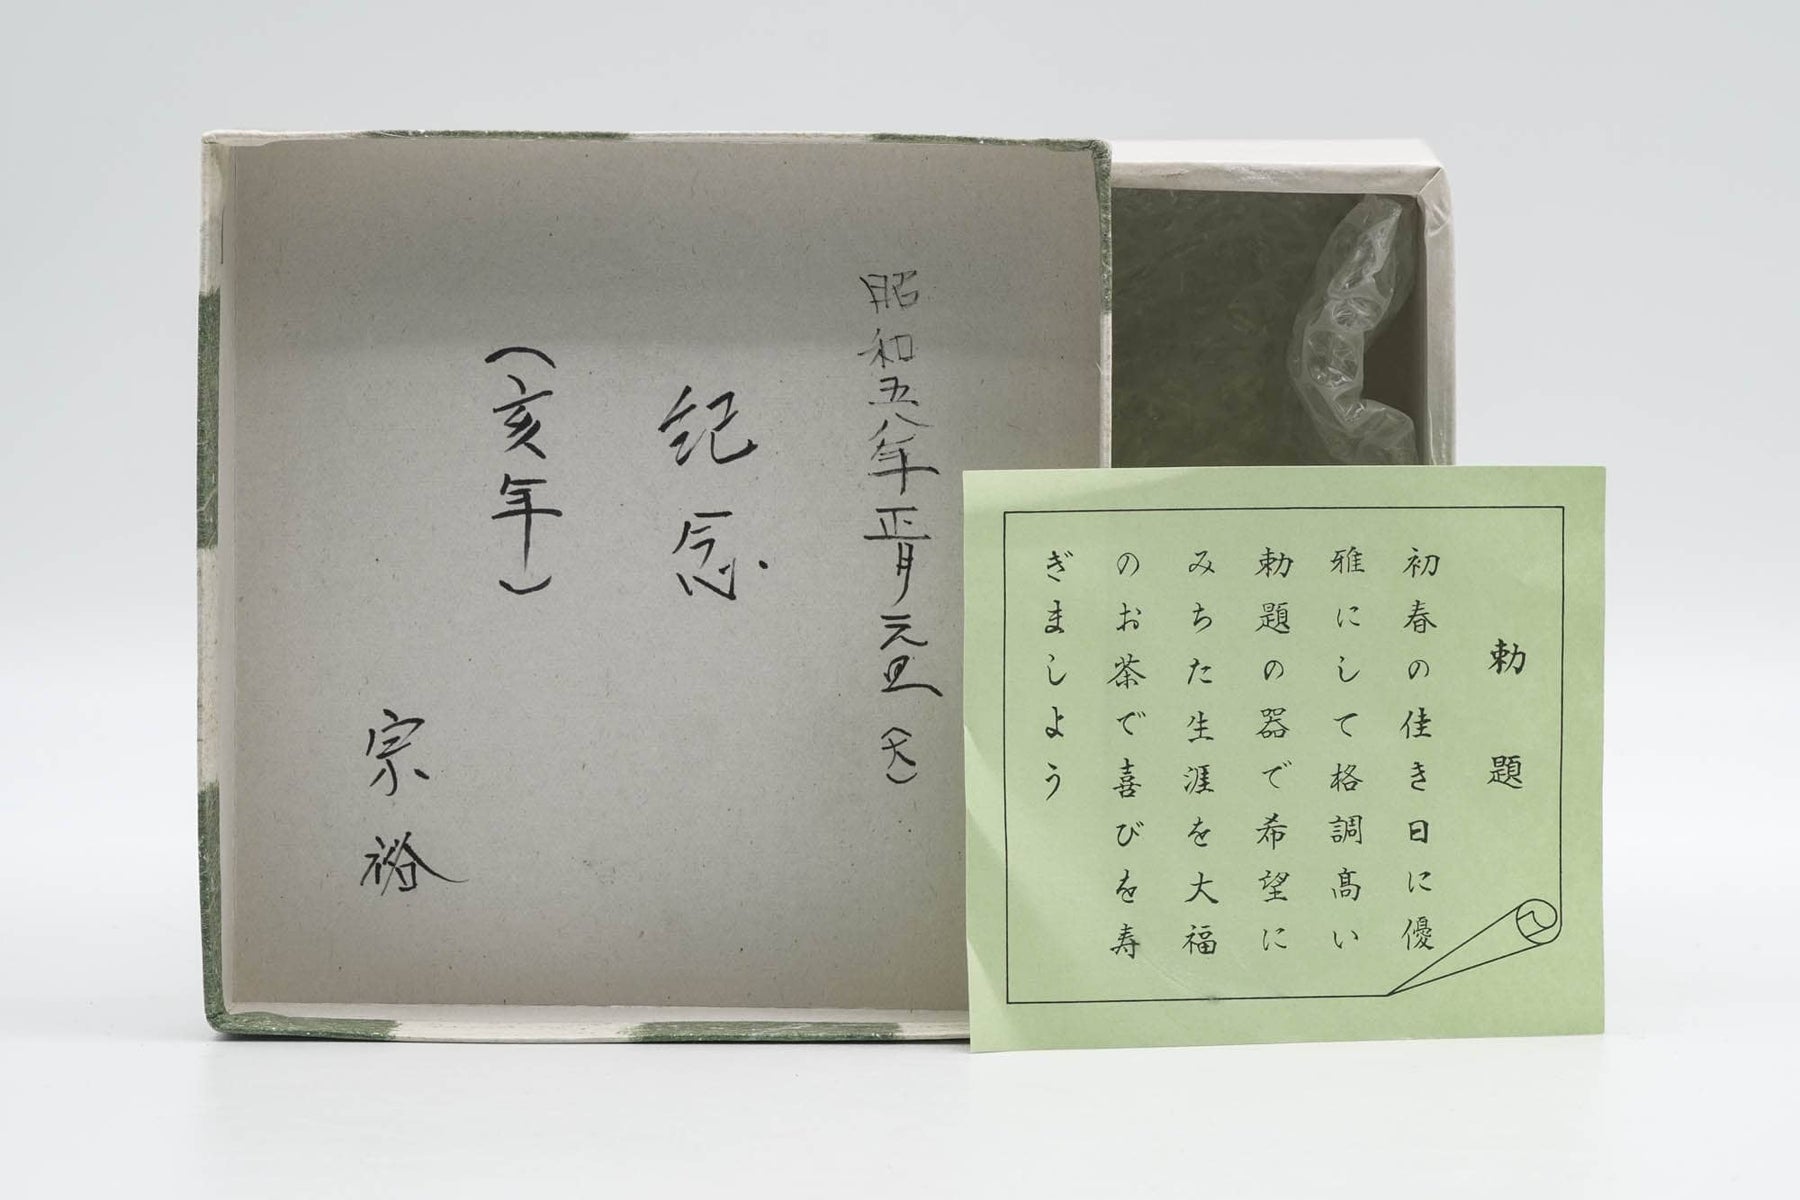 昭和五八年正月元旦(大)
紀念
(亥年)
宗裕
勅題
初春の佳き日に優
雅にして格調高い
勅題の器で希望に
みちた生涯を大福
のお茶で喜びを寿
ぎましよう